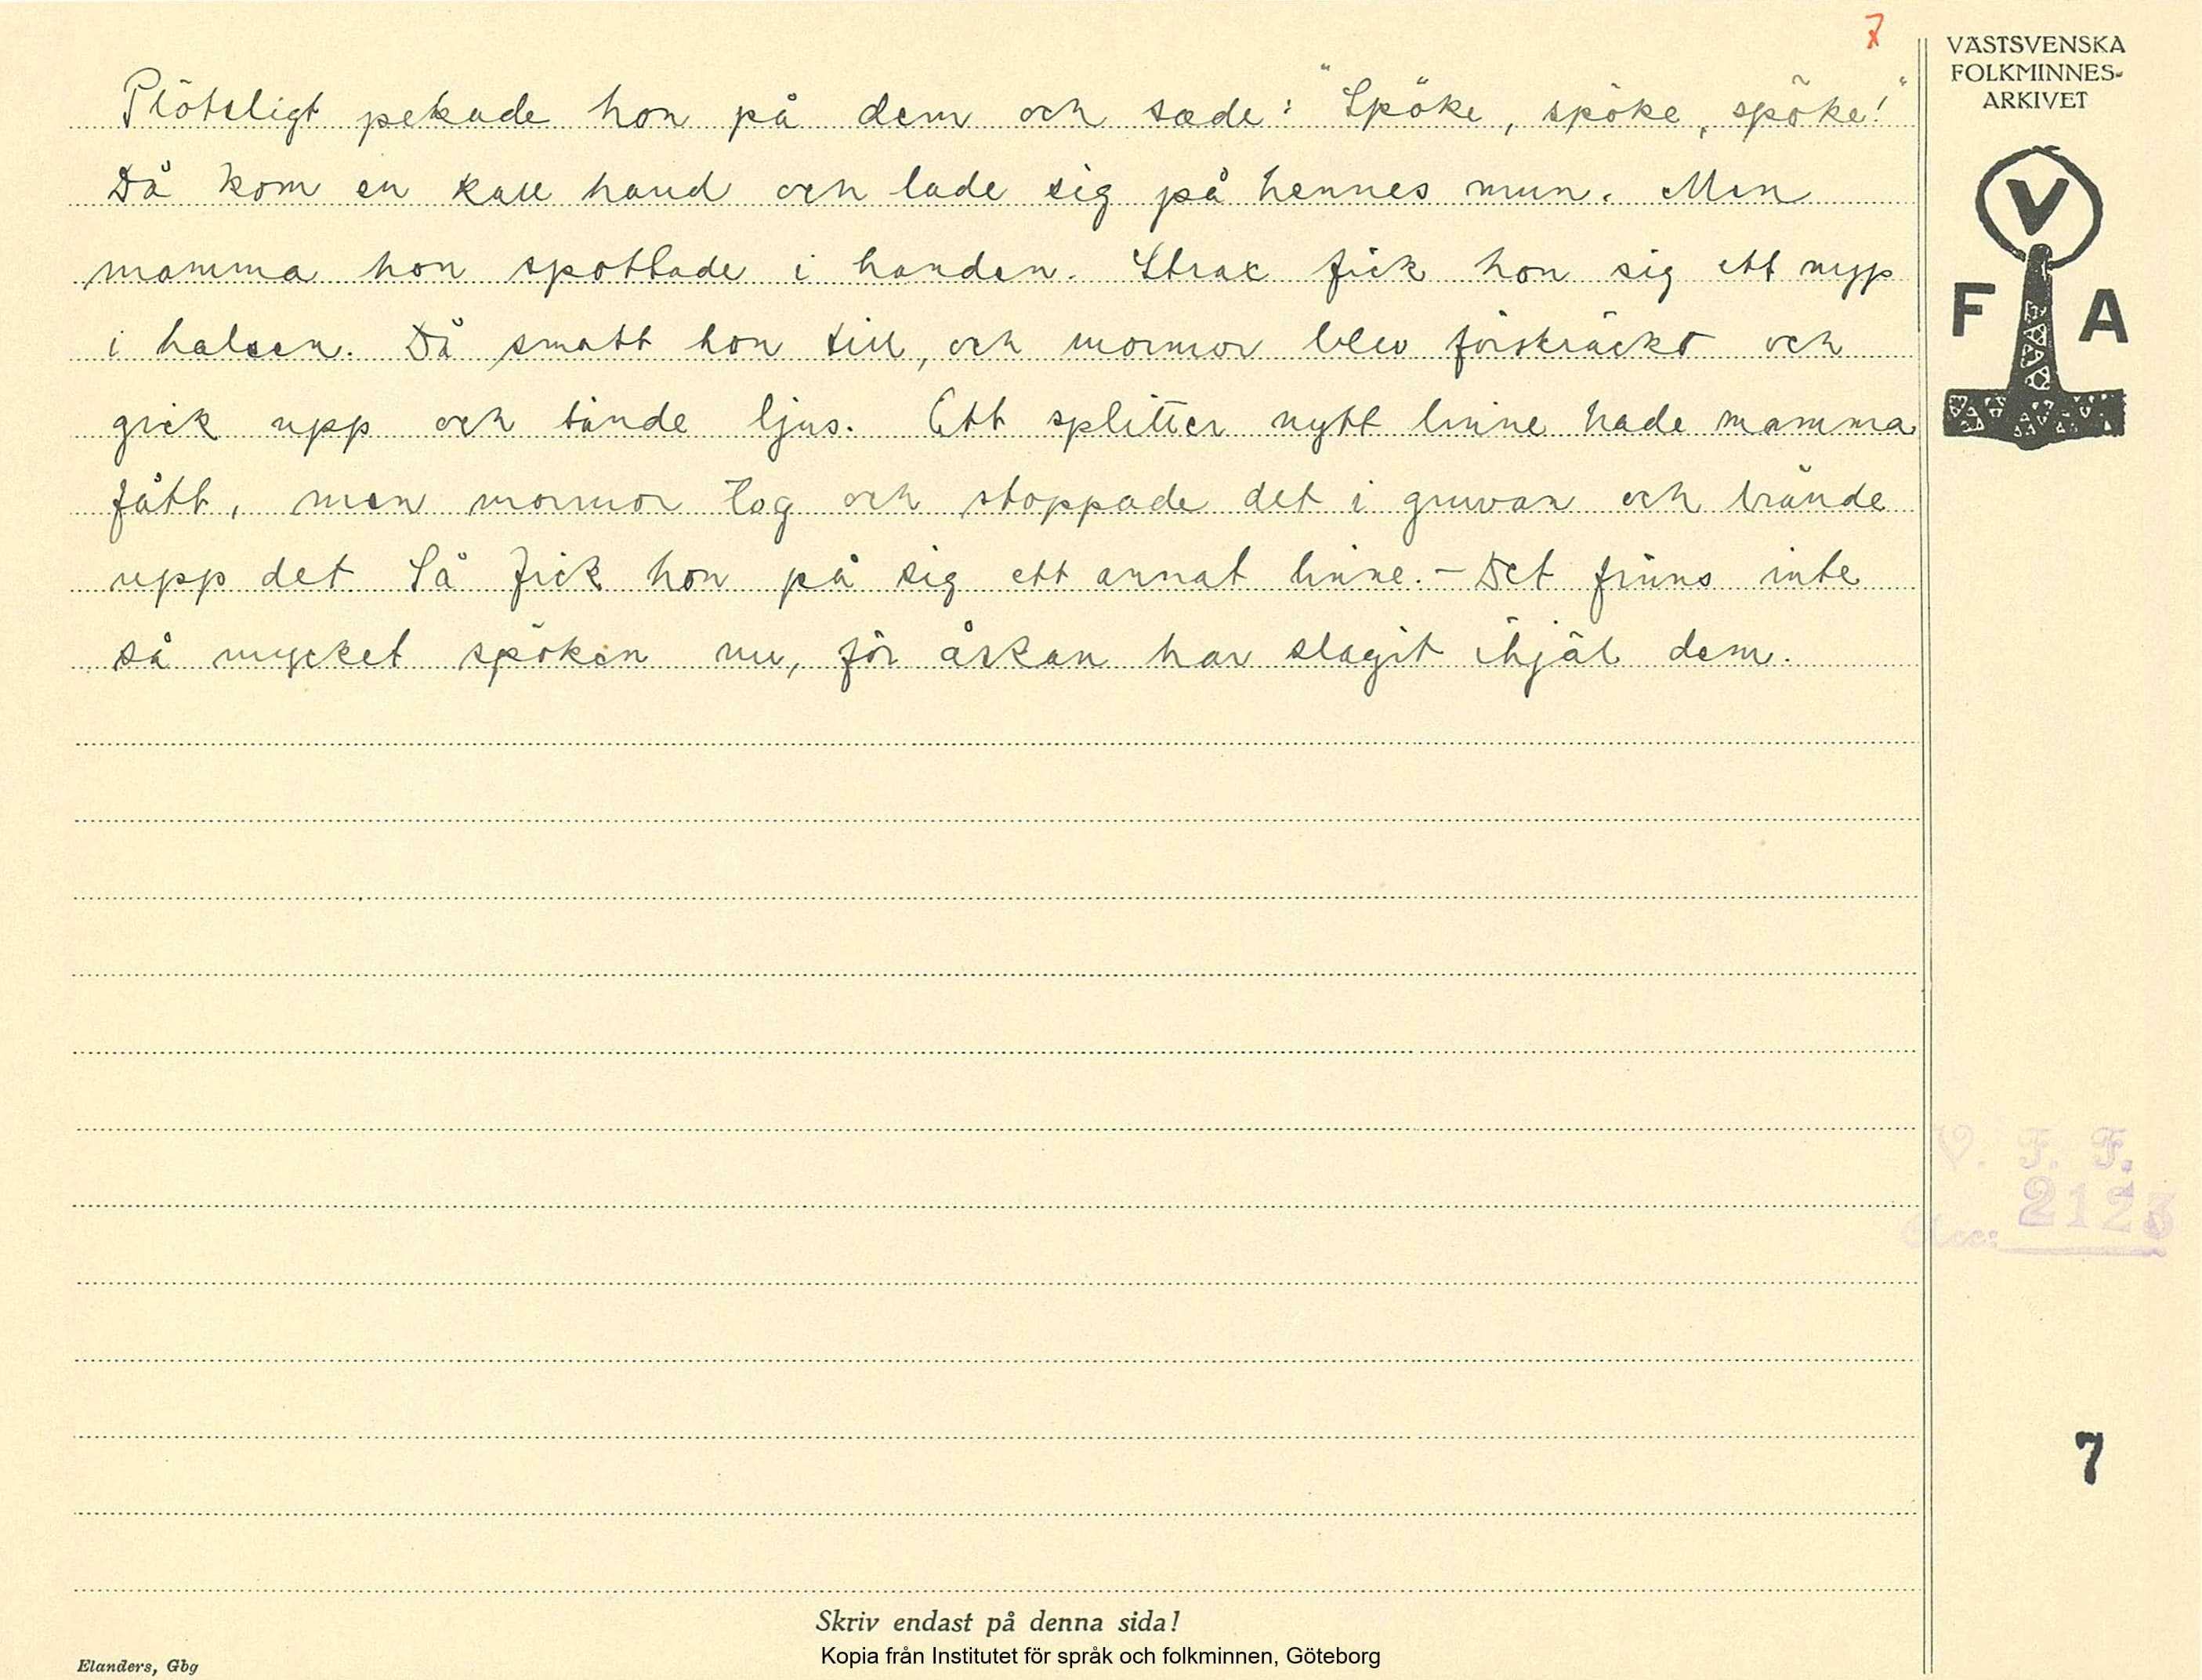 7
Plötsligt pekade hon på dem och sade: "Spöke, spöke, spöke!"
Då kom en kall hand och lade sig på hennes mun. Men
mamma hon spottade i handen. Strax fick hon sig ett nyp
i halsen. Då smatt hon till, och mormor blev förskräckt och
gick upp och tände ljus. Ett splitter nytt linne hade mamma
fått, men mormor tog och stoppade det i gruvan och brände
upp det Så fick hon på sig ett annat linne. - Det finns inte
så mycket spöken nu, för åskan har slagit ihjäl dem.
VÄSTSVENSKA
FOLKMINNES-
ARKIVET
V
F A
V. F. F.
Acc: 2123
7
Skriv endast på denna sida!
Kopia från Institutet för språk och folkminnen, Göteborg
Elanders, Gbg